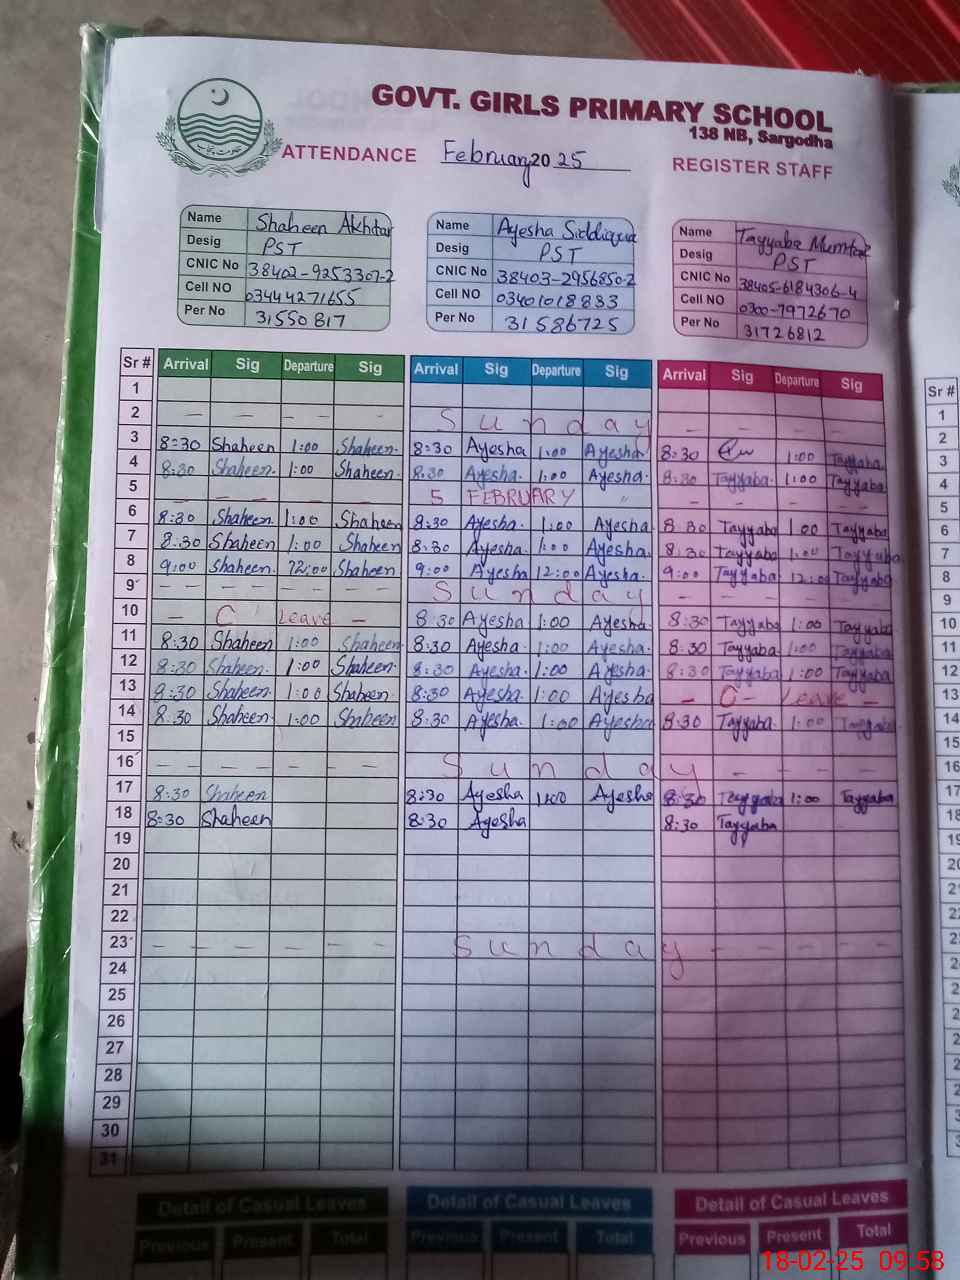 GOVT. GIRLS PRIMARY SCHOOL
138 NB, Sargodha
ATTENDANCE February 2025 REGISTER STAFF
Name Shaheen Akhtar Name Ayesha Siddiqua Name Tayyaba Mumtaz
Desig PST Desig PST Desig PST
CNIC No 38402-9253307-2 CNIC No 38403-2956850-2 CNIC No 38405-6184306-4
Cell NO 03444271655 Cell NO 03401018833 Cell NO 0300-7972670
Per No 31550817 Per No 31586725 Per No 31726812
Sr # Arrival Sig Departure Sig Arrival Sig Departure Sig Arrival Sig Departure Sig Sr #
1 1
2 - - - - - Sunday - - - - 2
3 8:30 Shaheen 1:00 Shaheen. 8:30 Ayesha 1:00 Ayesha 8:30 1:00 Tayyaba 3
4 8:30 Shaheen. 1:00 Shaheen. 8:30 Ayesha. 1:00 Ayesha. 8:30 Tayyaba. 1:00 Tayyaba 4
5 - - - - - 5 FEBRUARY " - - - - 5
6 8:30 Shaheen 1:00 Shaheen 8:30 Ayesha. 1:00 Ayesha. 8:30 Tayyaba 1:00 Tayyaba 6
7 8:30 Shaheen 1:00 Shaheen 8:30 Ayesha. 1:00 Ayesha. 8:30 Tayyaba 1:00 Tayyaba 7
8 9:00 Shaheen. 12:00 Shaheen 9:00 Ayesha 12:00 Ayesha. 9:00 Tayyaba 12:00 Tayyaba 8
9 - - - - - - Sunday - - - - 9
10 - C Leave - 8:30 Ayesha 1:00 Ayesha. 8:30 Tayyaba 1:00 Tayyaba 10
11 8:30 Shaheen 1:00 Shaheen 8:30 Ayesha. 1:00 Ayesha. 8:30 Tayyaba 1:00 Tayyaba 11
12 8:30 Shaheen. 1:00 Shaheen. 8:30 Ayesha. 1:00 Ayesha. 8:30 Tayyaba 1:00 Tayyaba 12
13 8:30 Shaheen. 1:00 Shaheen. 8:30 Ayesha. 1:00 Ayesha - C - Leave - 13
14 8:30 Shaheen. 1:00 Shaheen 8:30 Ayesha. 1:00 Ayesha 8:30 Tayyaba. 1:00 Tayyaba 14
15 15
16 - - - - - - Sunday - - - - 16
17 8:30 Shaheen 8:30 Ayesha 1:00 Ayesha 8:30 Tayyaba 1:00 Tayyaba 17
18 8:30 Shaheen 8:30 Ayesha 8:30 Tayyaba 18
19
20
21
22
23 - - - - - - Sunday - - - -
24
25
26
27
28
29
30
31
Detail of Casual Leaves Detail of Casual Leaves Detail of Casual Leaves
Previous Present Total Previous Present Total Previous Present Total
18-02-25 09:58